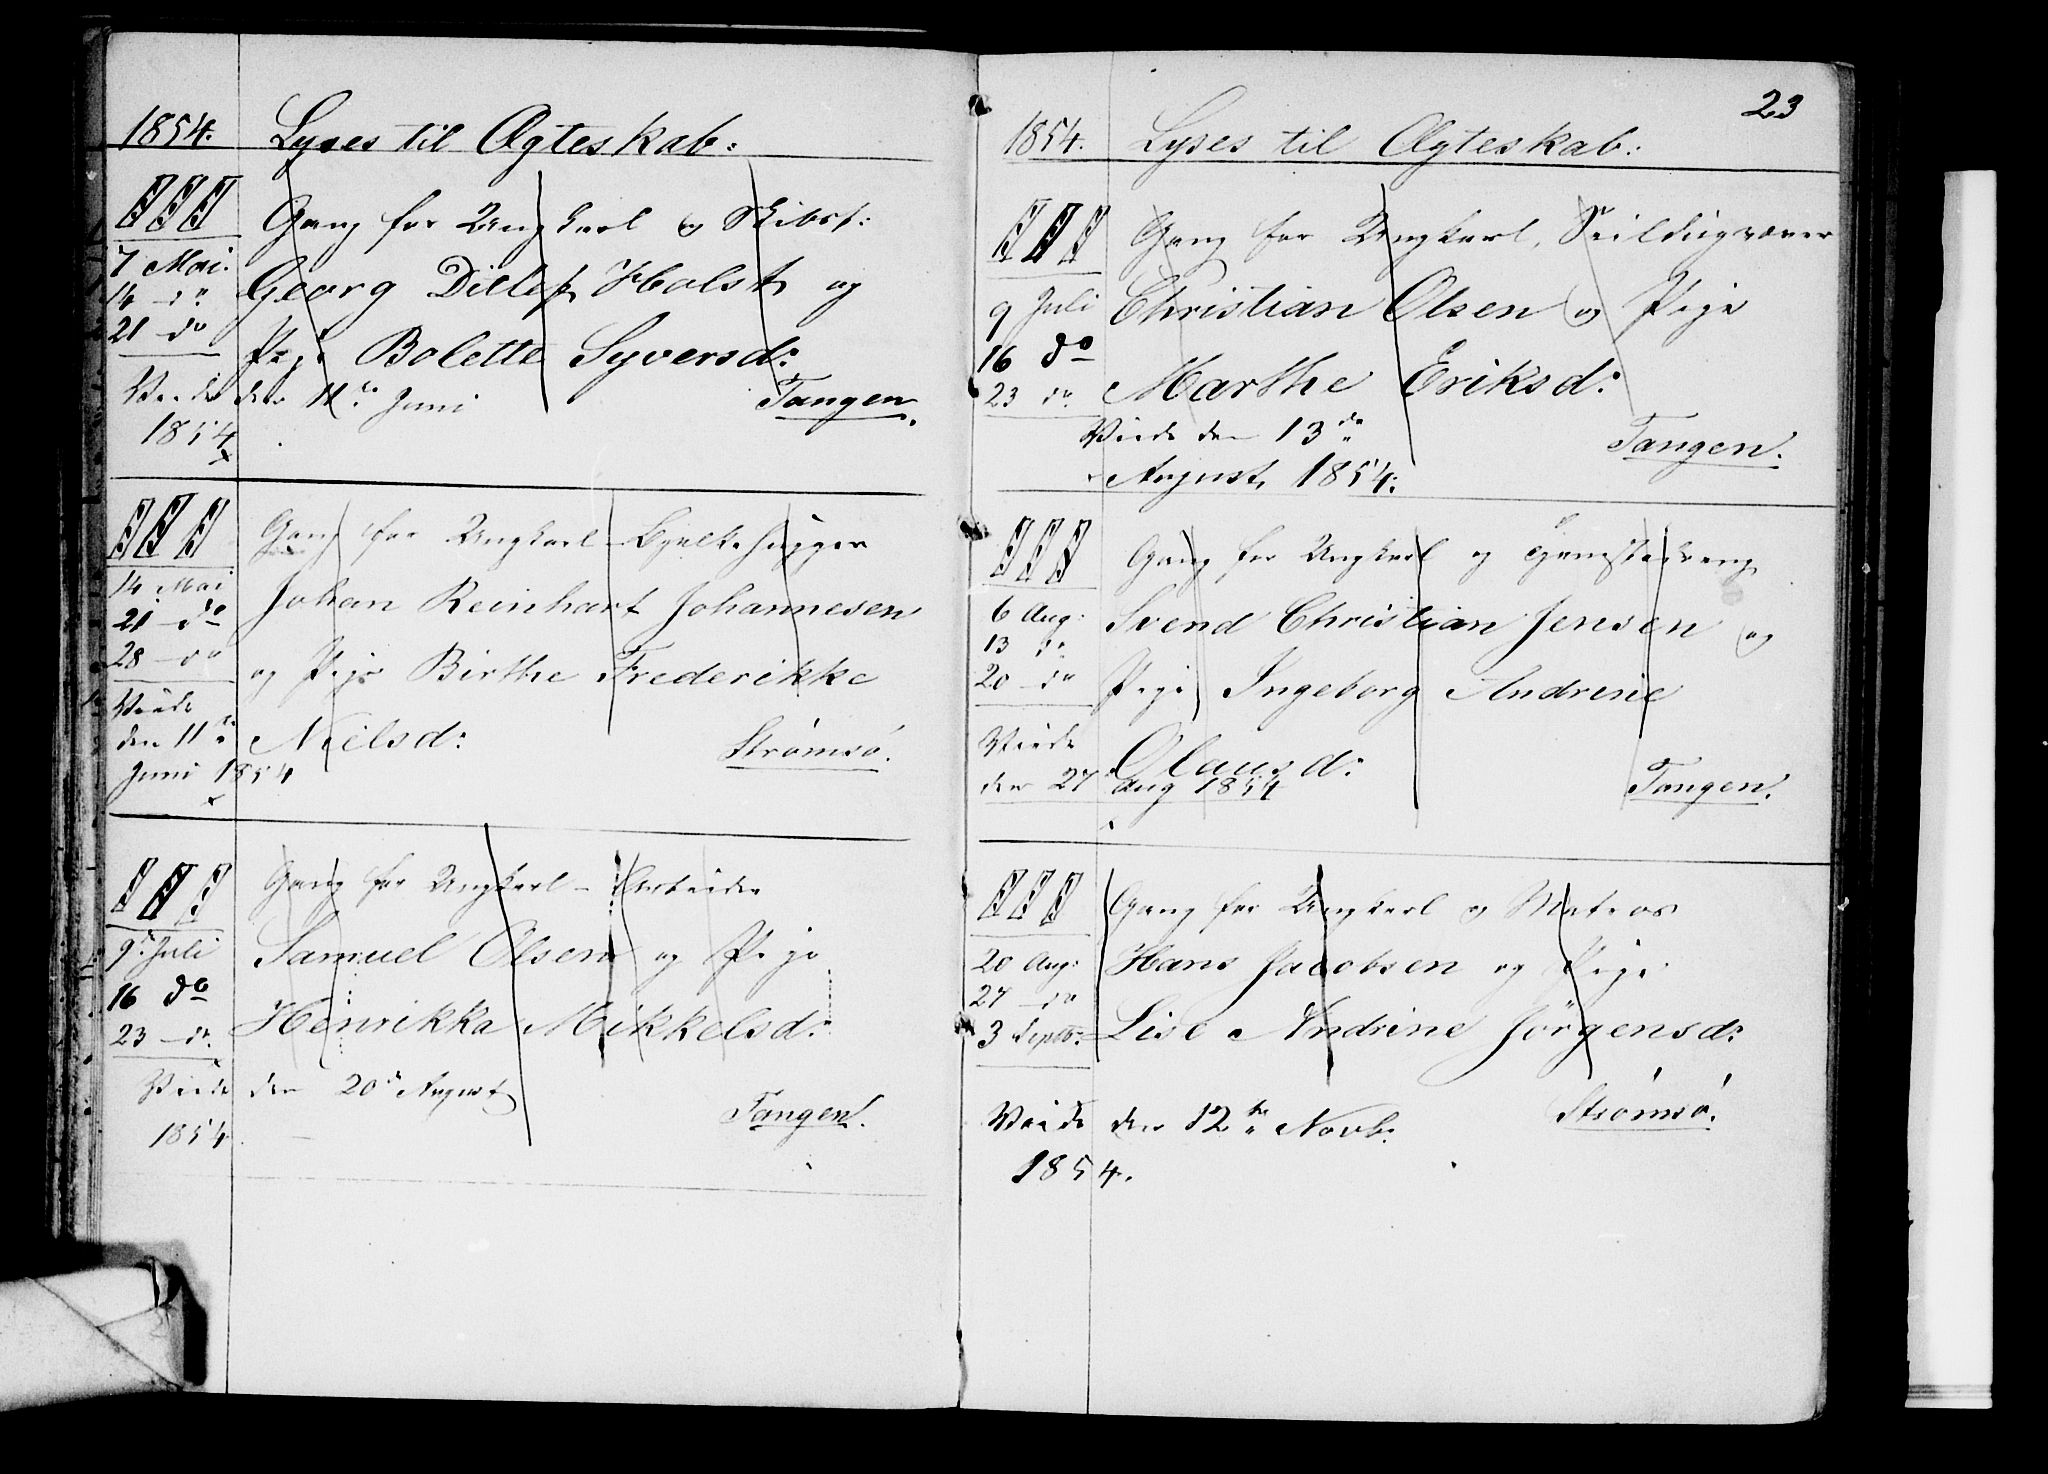 1854. Lyses til Ægteskab:
III Gang for Ungkarl og Skibst:
7 Mai. Georg Ditlef Holst og
14 - do
21 - do Pige Bolette Syversd:
Viede den 11te Juni Tangen.
1854
III Gang for Ungkarl - Bjelkehugger
14 Mai Johan Reinhart Johannesen
21 - do
28 - do og Pige Birthe Frederikke
Viede
den 11te Nielsd: Strømsø.
Juni 1854
III Gang for Ungkarl - Arbeider
9. Juli Samuel Olsen og Pige
16 do
23 - do. Henrikka Mikkelsd:
Viede den 20de August Tangen.
1854.
23
1854. Lyses til Ægteskab:
III Gang for Ungkarl, Seildugvæver
9 Juli Christian Olsen og Pige
16 do
23 do. Marthe Eriksd:
Viede den 13de Tangen.
August 1854.
III Gang for Ungkarl og Tjenestedreng
6 Aug: Svend Christian Jensen og
13 do
20 - do Pige Ingeborg Andrine
Viede Olausd:
den 27 Aug 1854 Tangen.
III Gang for Ungkarl og Matros
20 Aug: Hans Jacobsen og Pige
27 - do
3 Septbr: Lise Andrine Jörgensd:
Strömsö.
Viede den 12te Novb:
1854.